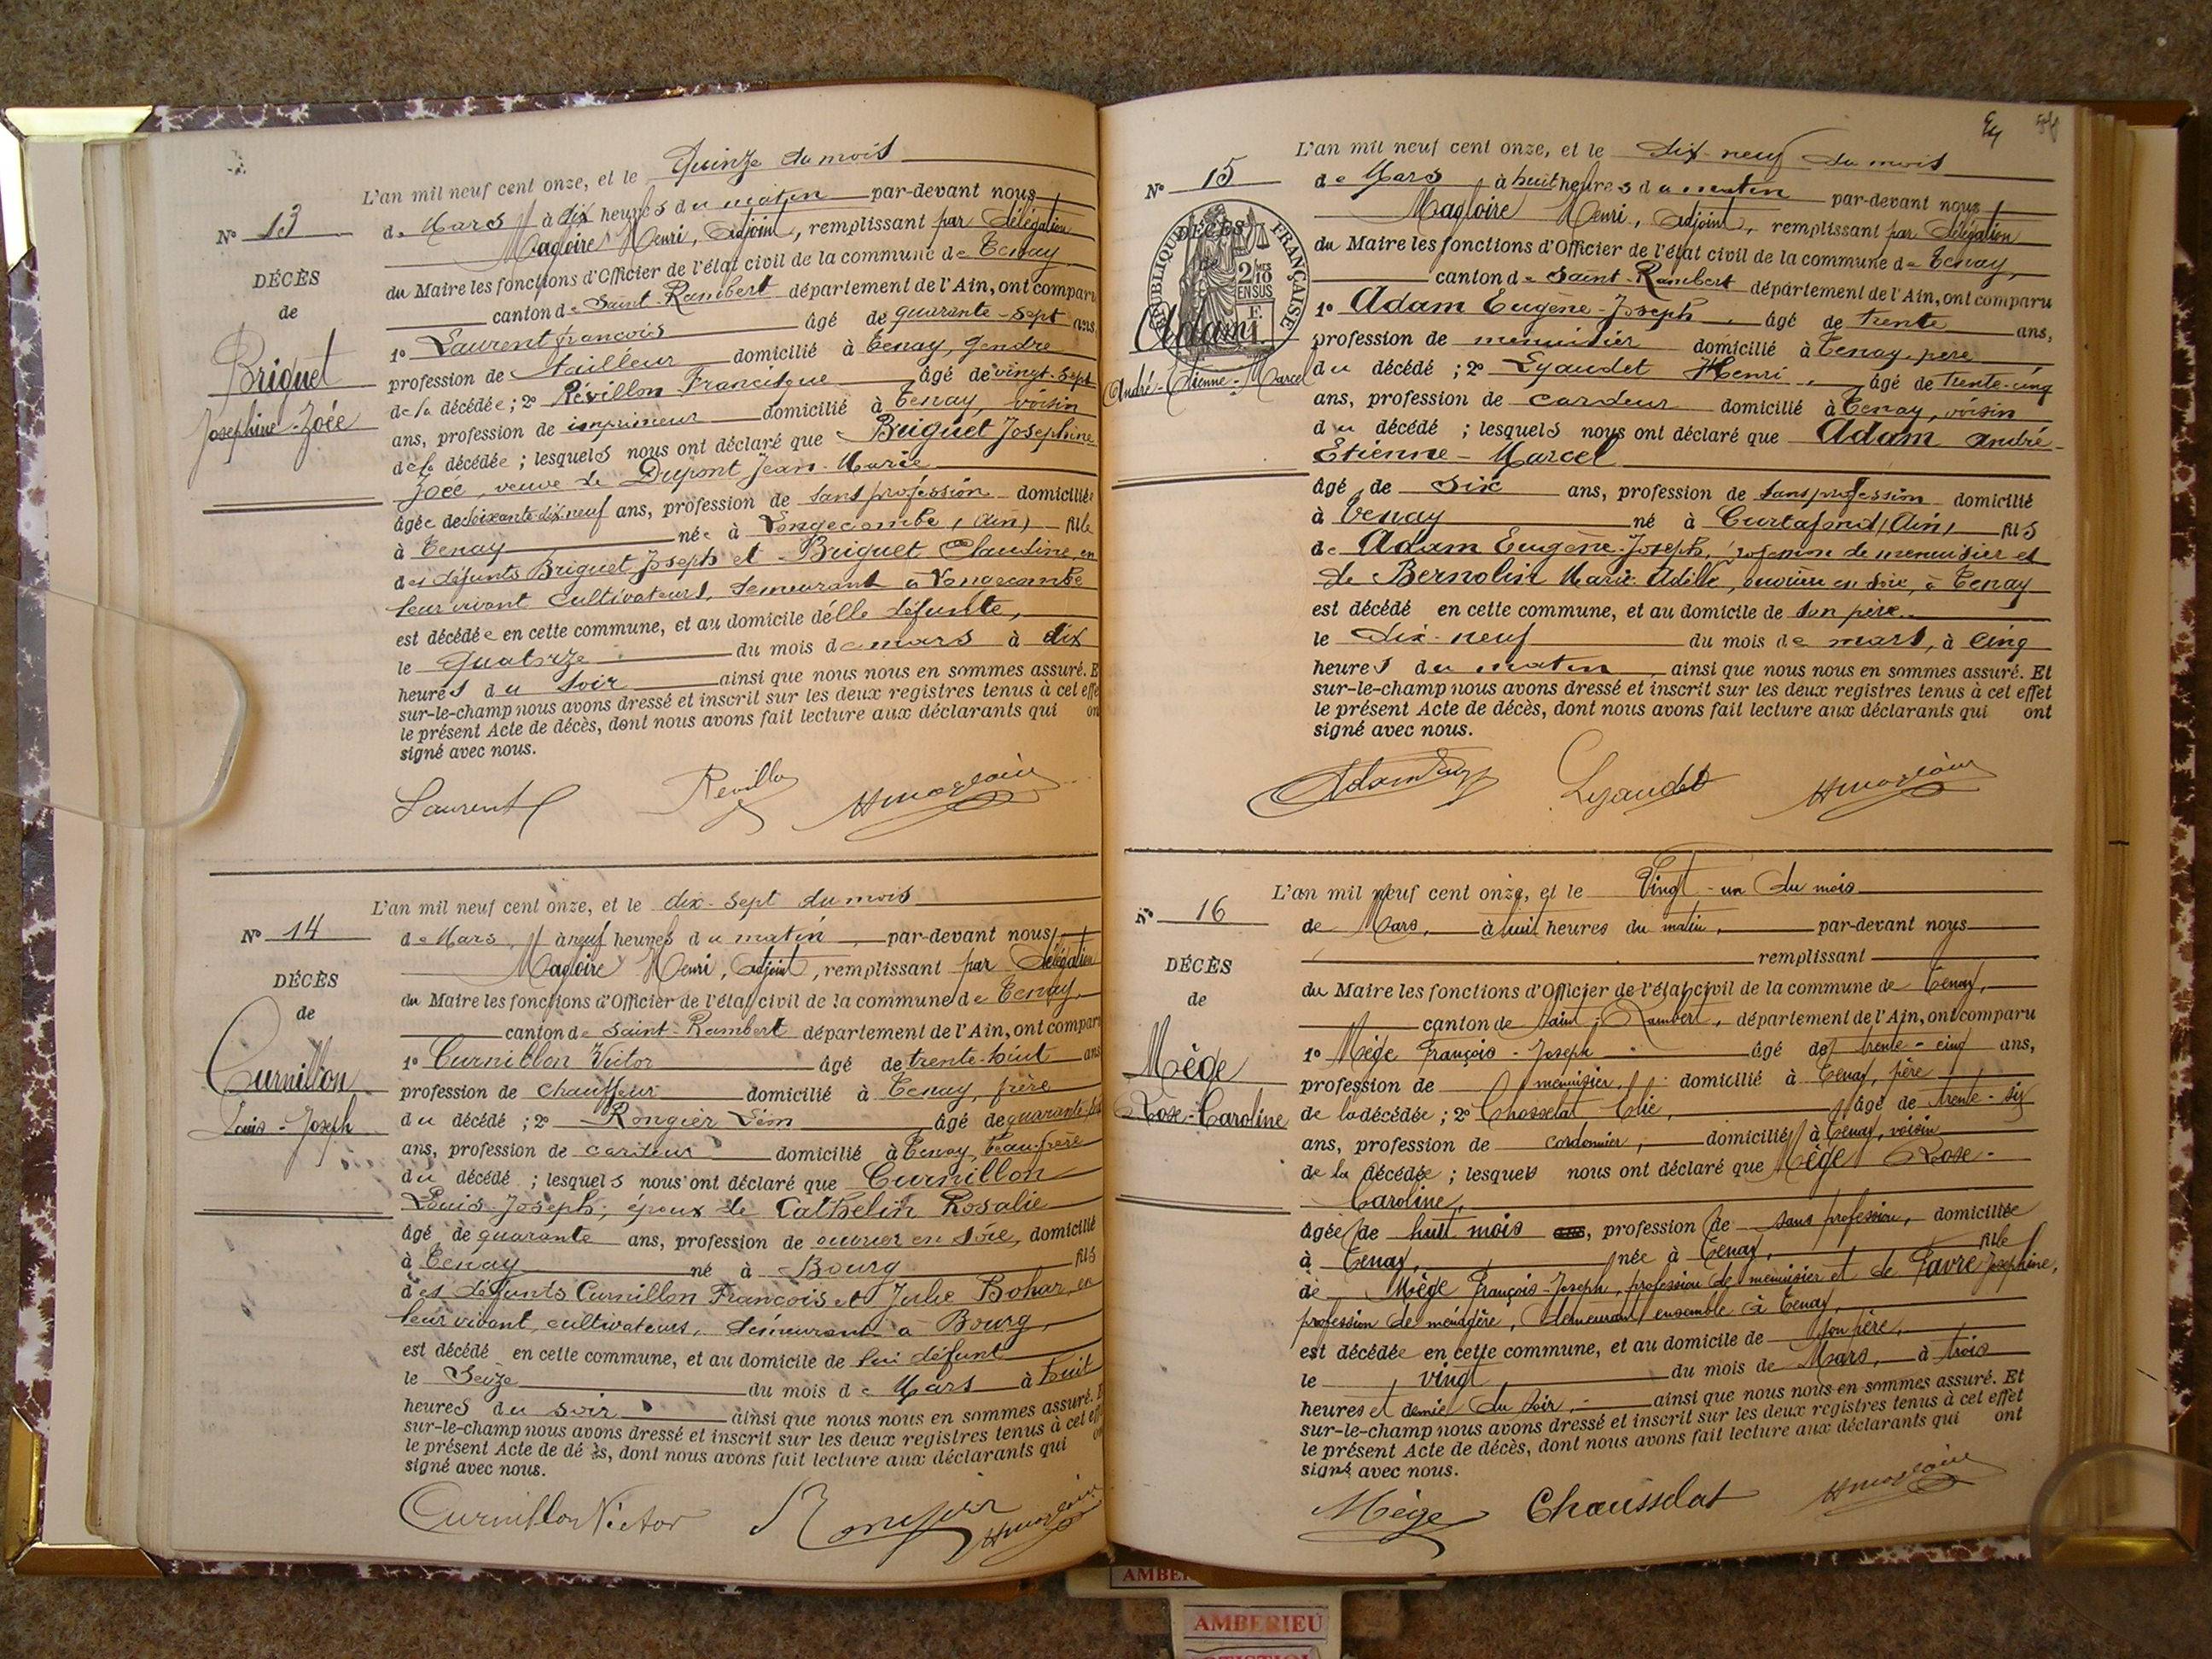 L'an mil neuf cent onze, et le Quinze du mois
N° 13
de Mars à dix heures du matin par-devant nous
Magloire Henri, adjoint, remplissant par Délégation
du Maire les fonctions d'Officier de l'état civil de la commune de Tenay
canton de Saint-Rambert département de l'Ain, ont comparu
DÉCÈS
de
Briquet
Josephine-Zoée
1° Laurent François âgé de quarante-sept ans,
profession de tailleur domicilié à Tenay, gendre
de la décédée ; 2° Révillon Francisque âgé de vingt-sept
ans, profession de imprimeur domicilié à Tenay, voisin
de la décédée ; lesquels nous ont déclaré que Briguet Josephine
Zoée, veuve de Dupont Jean-Marie
âgée de soixante-dix-neuf ans, profession de sans profession domiciliée
à Tenay née à Longecombe (Ain) fille
des défunts Briguet Joseph et Briguet Claudine, en
leur vivant cultivateurs, demeurant à Longecombe
est décédée en cette commune, et au domicile d'elle défunte,
le Quatorze du mois de mars à dix
heures du soir ainsi que nous nous en sommes assuré. E
sur-le-champ nous avons dressé et inscrit sur les deux registres tenus à cet effe
le présent Acte de décès, dont nous avons fait lecture aux déclarants qui on
signé avec nous.
Laurent Revillon HMagloire
L'an mil neuf cent onze, et le dix-sept du mois
N° 14
de Mars, à neuf heures du matin, par-devant nous
Magloire Henri, adjoint, remplissant par Délégation
du Maire les fonctions d'Officier de l'état civil de la commune de Tenay,
canton de Saint-Rambert département de l'Ain, ont compar
DÉCÈS
de
Curnillon
Louis-Joseph
1° Curnillon Victor âgé de trente-huit ans
profession de chauffeur domicilié à Tenay, frère
du décédé ; 2° Rongier Léon âgé de quarante
ans, profession de cardeur domicilié à Tenay, beaufrère
du décédé ; lesquels nous ont déclaré que Curnillon
Louis-Joseph, époux de Cathelin Rosalie
âgé de quarante ans, profession de ouvrier en soie, domicilié
à Tenay né à Bourg fils
des défunts Curnillon François et Julie Bohar, en
leur vivant, cultivateurs, demeurant à Bourg,
est décédé en cette commune, et au domicile de lui défunt
le Seize du mois de Mars à huit
heures du soir ainsi que nous nous en sommes assuré.
sur-le-champ nous avons dressé et inscrit sur les deux registres tenus à cet eff
le présent Acte de décès, dont nous avons fait lecture aux déclarants qui
signé avec nous.
Curnillon Victor Rongier HMagloire
L'an mil neuf cent onze, et le dix-neuf du mois
N° 15
de Mars à huit heures du matin par-devant nous
Magloire Henri, adjoint, remplissant par Délégation
du Maire les fonctions d'Officier de l'état civil de la commune de Tenay,
canton de Saint-Rambert département de l'Ain, ont comparu
DÉCÈS
de
RÉPUBLIQUE FRANÇAISE
2/10
EN SUS
Adam
André-Etienne-Marcel
1° Adam Eugène-Joseph, âgé de trente ans,
profession de menuisier domicilié à Tenay, père
du décédé ; 2° Lyaudet Henri, âgé de trente-cinq
ans, profession de cardeur domicilié à Tenay, voisin
du décédé ; lesquels nous ont déclaré que Adam André-
Etienne-Marcel
âgé de six ans, profession de sans profession domicilié
à Tenay né à Curtafond (Ain) fils
de Adam Eugène-Joseph, profession de menuisier et
de Bernolin Marie-Adèle, ouvrière en soie, à Tenay
est décédé en cette commune, et au domicile de son père
le dix-neuf du mois de mars, à cinq
heures du matin, ainsi que nous nous en sommes assuré. Et
sur-le-champ nous avons dressé et inscrit sur les deux registres tenus à cet effet
le présent Acte de décès, dont nous avons fait lecture aux déclarants qui ont
signé avec nous.
Lyaudet HMagloire
L'an mil neuf cent onze, et le Vingt-un du mois
N° 16
de Mars, à huit heures du matin, par-devant nous
remplissant
du Maire les fonctions d'Officier de l'état civil de la commune de Tenay,
canton de Saint-Rambert, département de l'Ain, ont comparu
DÉCÈS
de
Mège
Rose-Caroline
1° Mège François-Joseph âgé de trente-cinq ans,
profession de menuisier, domicilié à Tenay, père
de la décédée ; 2° Chosselat Elie, âgé de trente-six
ans, profession de cordonnier, domicilié à Tenay, voisin
de la décédée ; lesquels nous ont déclaré que Mège Rose-
Caroline,
âgée de huit mois ans, profession de sans profession, domiciliée
à Tenay, née à Tenay, fille
de Mège François-Joseph, profession de menuisier et de Favre Josephine,
profession de ménagère, demeurant ensemble à Tenay,
est décédée en cette commune, et au domicile de son père,
le vingt du mois de Mars, à trois
heures et demie du soir, ainsi que nous nous en sommes assuré. Et
sur-le-champ nous avons dressé et inscrit sur les deux registres tenus à cet effet
le présent Acte de décès, dont nous avons fait lecture aux déclarants qui ont
signé avec nous.
Mège Chausselat HMagloire
AMBERIEU